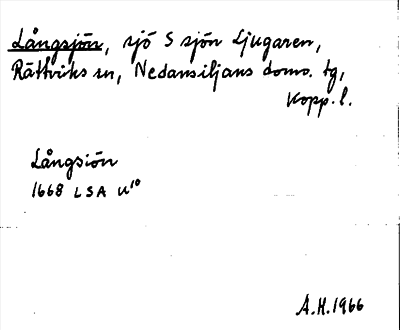 Långsjön, sjö S sjön Ljugaren,
Rättviks sn, Nedansiljans doms. tg,
Kopp. l.
Långsiön
1668 LSA U¹⁰
A.H. 1966